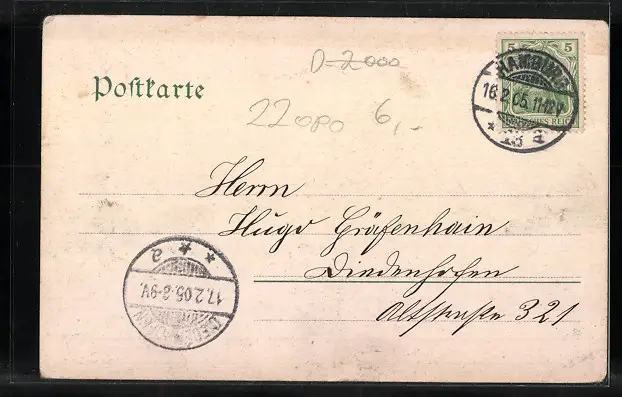 D-2000
5 5
HAMBURG
16.2.05.11-12V.
* 13 a *
DEUTSCHES REICH
Postkarte
22000 6,-
Herrn
Hugo Gräfenhain
Diedenhofen
Altstraße 321
* * a
17.2.05.8-9V.